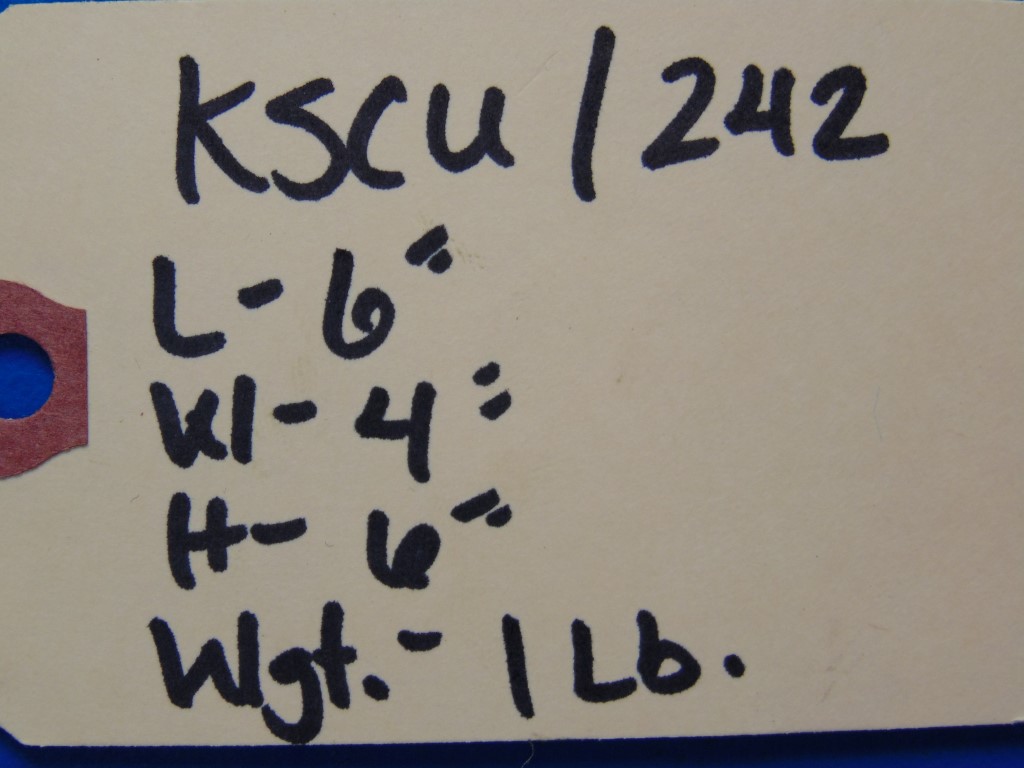 KSCU / 242
L - 6"
W - 4"
H - 6"
Wgt. - 1 Lb.